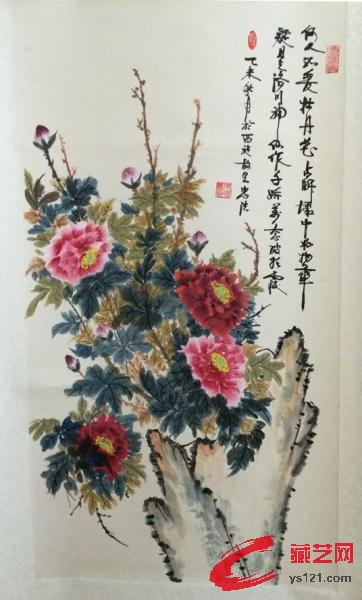 何人不愛牡丹花占断城中好物華
疑是洛川神仙作千娇萬态破朝霞
乙未秋月於西
藏艺网
ys121.com